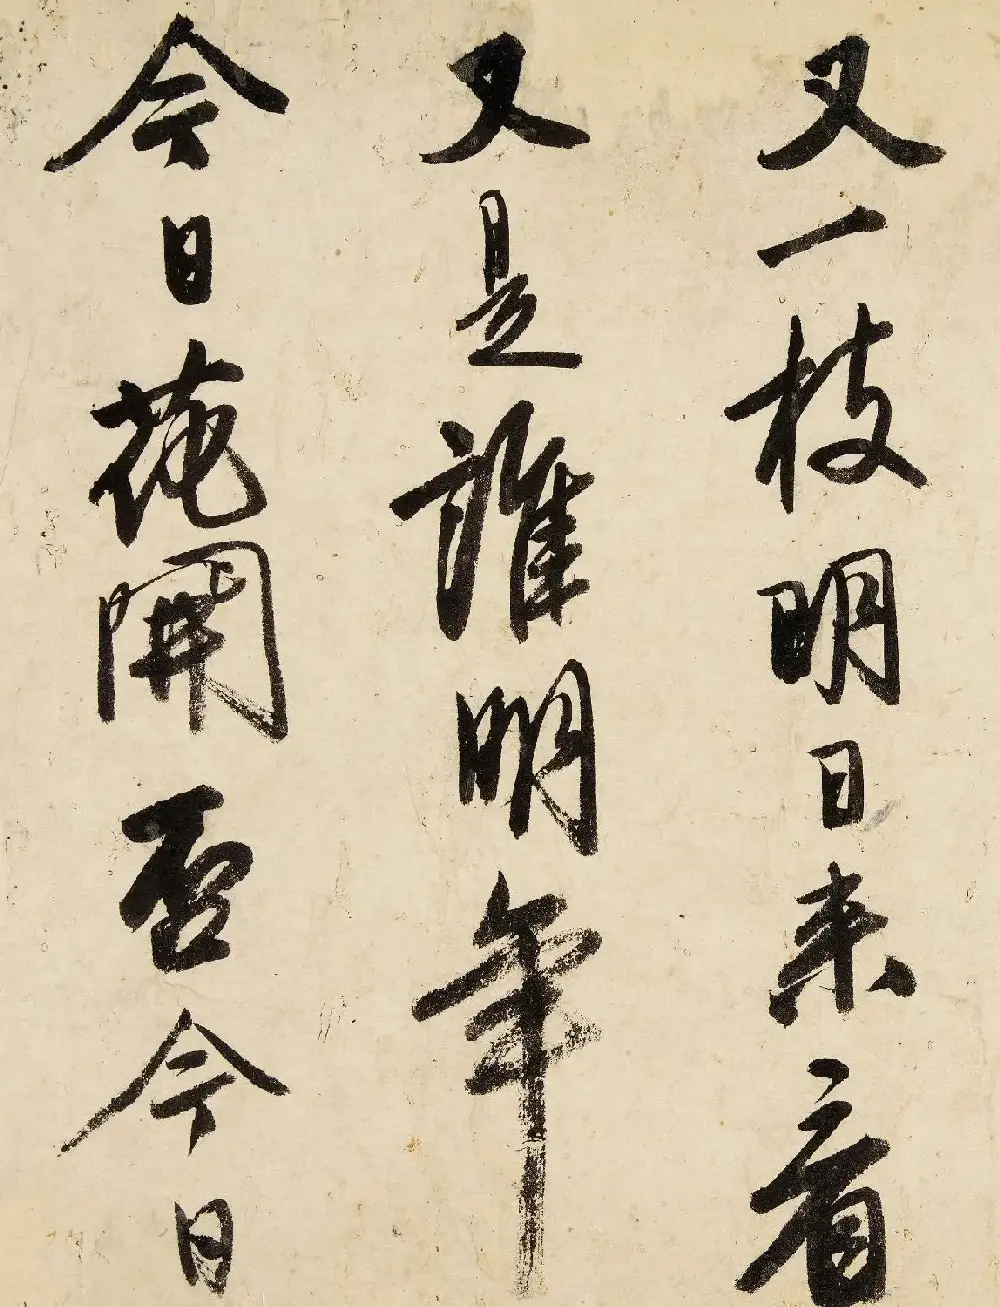 又一枝明日来看
又是誰明年
今日花開否今日